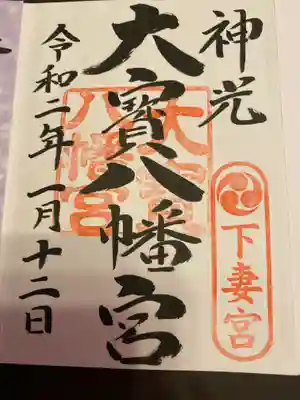 神光
下妻宮
大寳八幡宮
大寳八幡宮
令和二年一月十二日